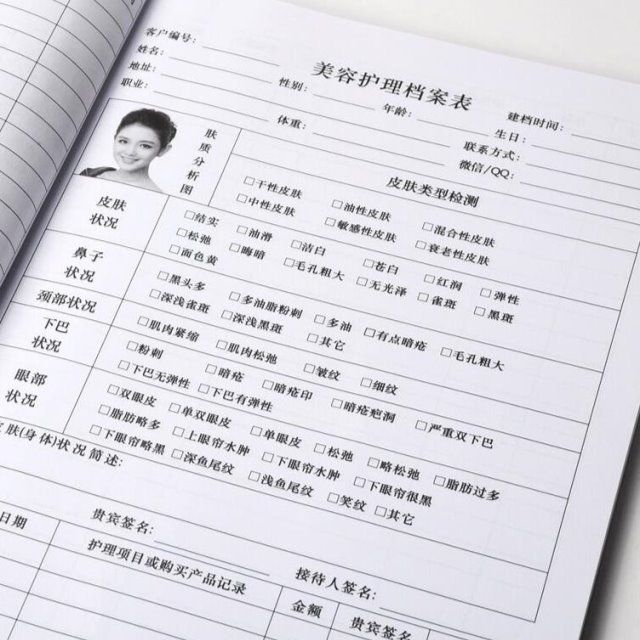 美容护理档案表
客户编号:
建档时间:
姓名: 性别: 年龄: 生日:
地址: 联系方式:
职业: 体重: 微信/QQ:
肤质分析图
皮肤类型检测
□干性皮肤 □油性皮肤 □混合性皮肤
□中性皮肤 □敏感性皮肤 □衰老性皮肤
皮肤状况
□结实 □油滑 □洁白 □苍白 □红润 □弹性
□松弛 □晦暗 □毛孔粗大 □无光泽 □雀斑 □黑斑
□面色黄
鼻子状况
□黑头多 □多油脂粉刺 □多油 □有点暗疮 □毛孔粗大
□深浅雀斑 □深浅黑斑 □其它
颈部状况
□肌肉紧缩 □肌肉松弛 □皱纹 □细纹
下巴状况
□粉刺 □暗疮 □暗疮印 □暗疮疤洞 □严重双下巴
□下巴无弹性 □下巴有弹性
眼部状况
□双眼皮 □单双眼皮 □单眼皮 □松弛 □略松弛 □脂肪过多
□脂肪略多 □上眼帘水肿 □下眼帘水肿 □下眼帘很黑
□下眼帘略黑 □深鱼尾纹 □浅鱼尾纹 □笑纹 □其它
肤(身体)状况简述:
贵宾签名: 接待人签名:
日期 护理项目或购买产品记录 金额 贵宾签名